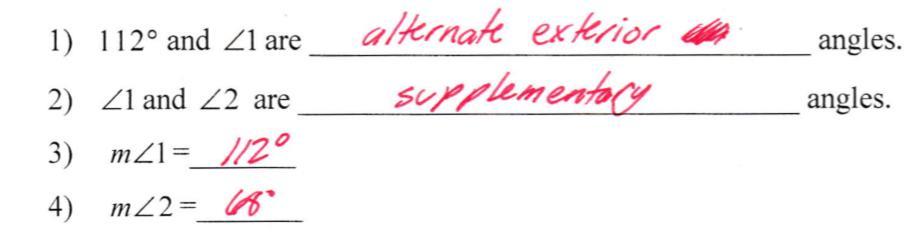 1) 112° and ∠1 are alternate exterior angles.
2) ∠1 and ∠2 are supplementary angles.
3) m∠1= 112°
4) m∠2= 68°